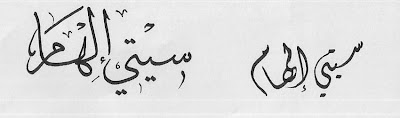 سِيْتِي إِلْهَامْ
سيتي إلهام